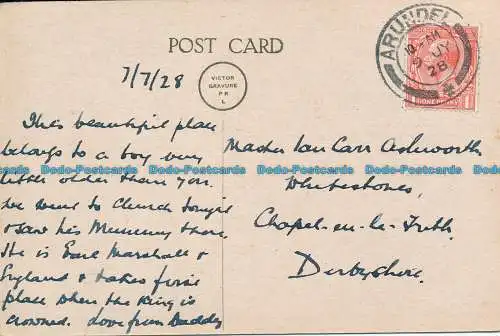 POST CARD
ARUNDEL
10 - AM
9 JY
28
ONE PENNY
7/7/28
VICTOR
GRAVURE
PR
L
This beautiful place
belongs to a boy very
little older than you.
We went to Church tonight
& saw his Mummy there.
He is Earl Marshall of
England & takes first
place when the King is
crowned. Love from Daddy
Master Ian Carr Ashworth
Whitestones,
Chapel-en-le-Frith
Derbyshire.
Dodo-Postcards Dodo-Postcards Dodo-Postcards Dodo-Postcards